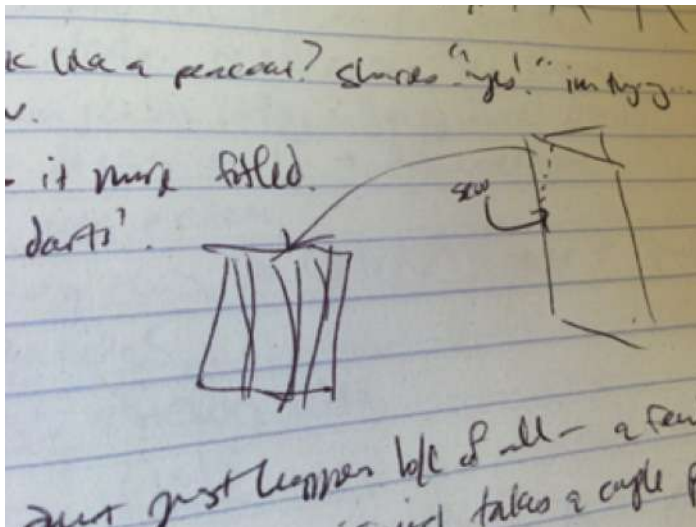 like a peacoat? shares "yes!" im trying...
- it more fitted.
darts'.
sew
just happen b/c of all - a few
takes a couple